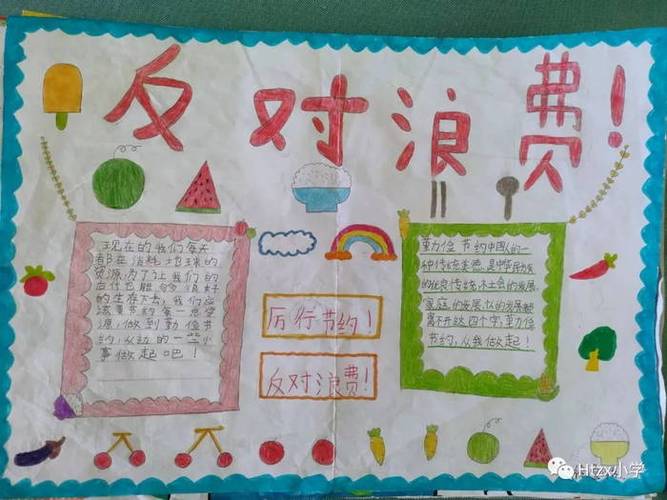 反对浪费！
现在的我们每天
都在消耗地球的
资源,为了让我们的
后代也能够很好
的生存下去，我们应
该重节约每一点资
源，做到勤俭节
约，从边的一些小
事做起吧！
厉行节约！
反对浪费！
勤俭节约中国人的一
种传统美德,是中华民族
的优良传统,社会的发展,
家庭的发展,
离不开这四个字,勤俭
节约,从我做起！
Htzx小学